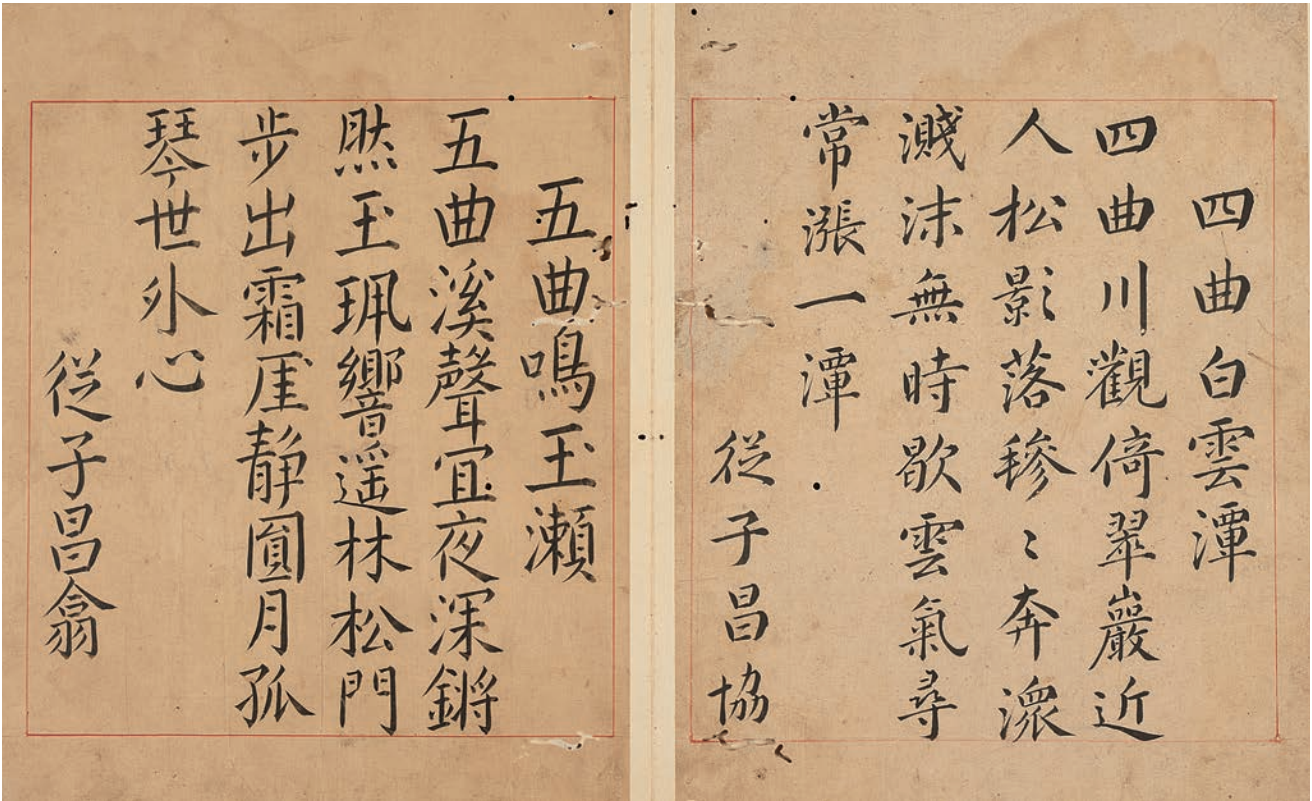 四曲白雲潭
四曲川觀倚翠巖近
人松影落毿〻奔潨
濺沫無時歇雲氣尋
常漲一潭
從子昌協
五曲鳴玉瀨
五曲溪聲宜夜深鏘
然玉珮響遥林松門
步出霜厓靜圓月孤
琴世外心
從子昌翕